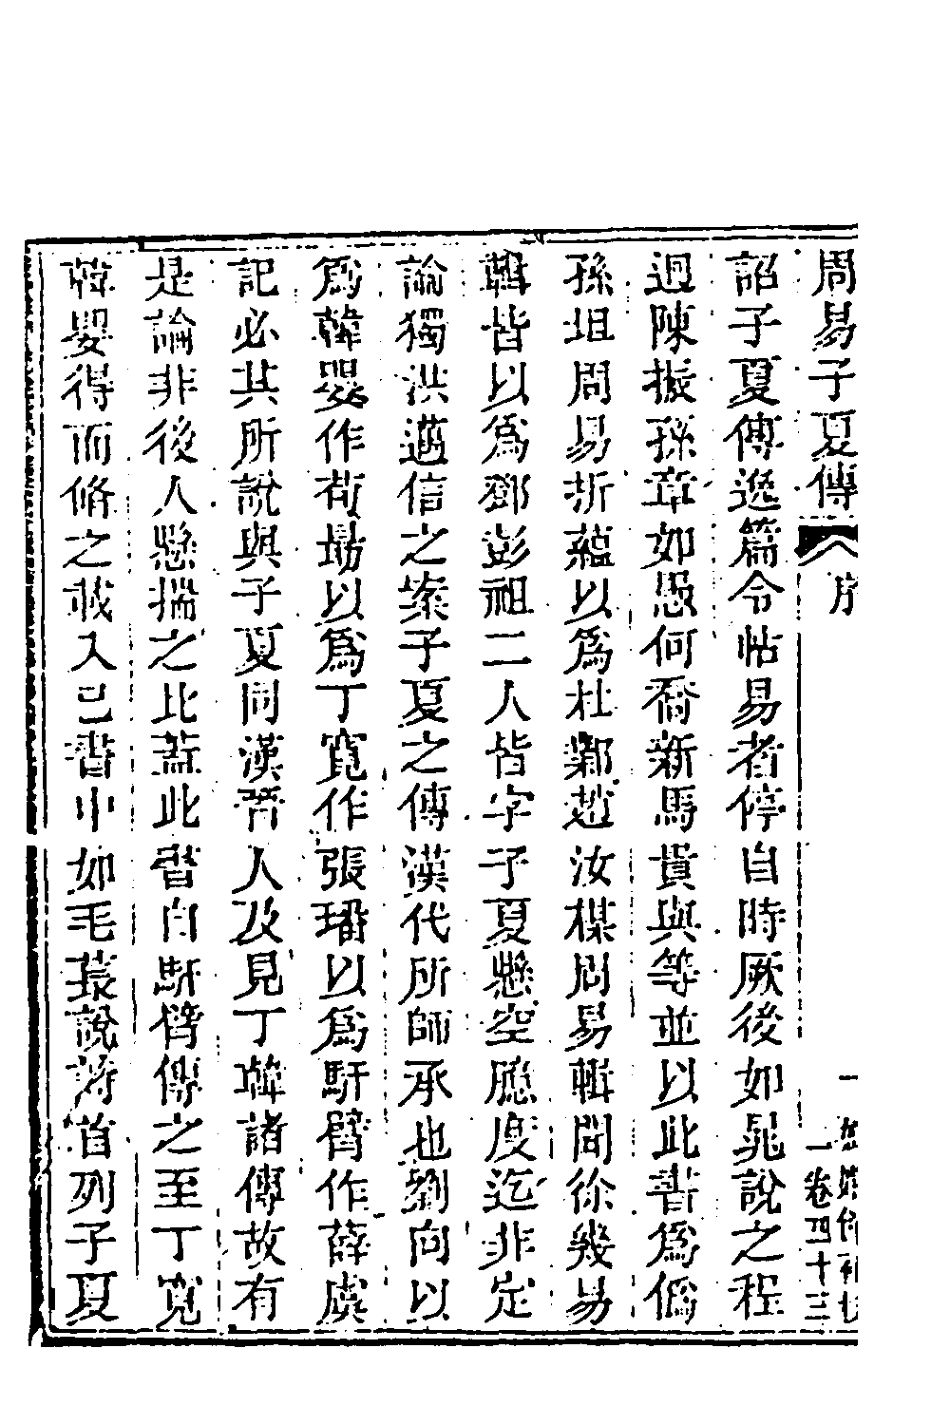 周易子夏傳 序
一 卷四十三
詔子夏傳逸篇令帖易者停自時厥後如晁說之程
迥陳振孫章如愚何喬新馬貴與等並以此書為偽
孫坦周易折蘊以為杜鄴趙汝楳周易輯聞徐幾易
輯皆以為鄧彭祖二人皆字子夏懸空臆度迄非定
論獨洪邁信之案子夏之傳漢代所師承也劉向以
為韓嬰作荀勗以為丁寬作張璠以為馯臂作薛虞
記必其所說與子夏同漢晉人及見丁韓諸傳故有
是論非後人懸揣之比蓋此書自馯臂傳之至丁寬
韓嬰得而脩之載入己書中如毛萇說詩首列子夏